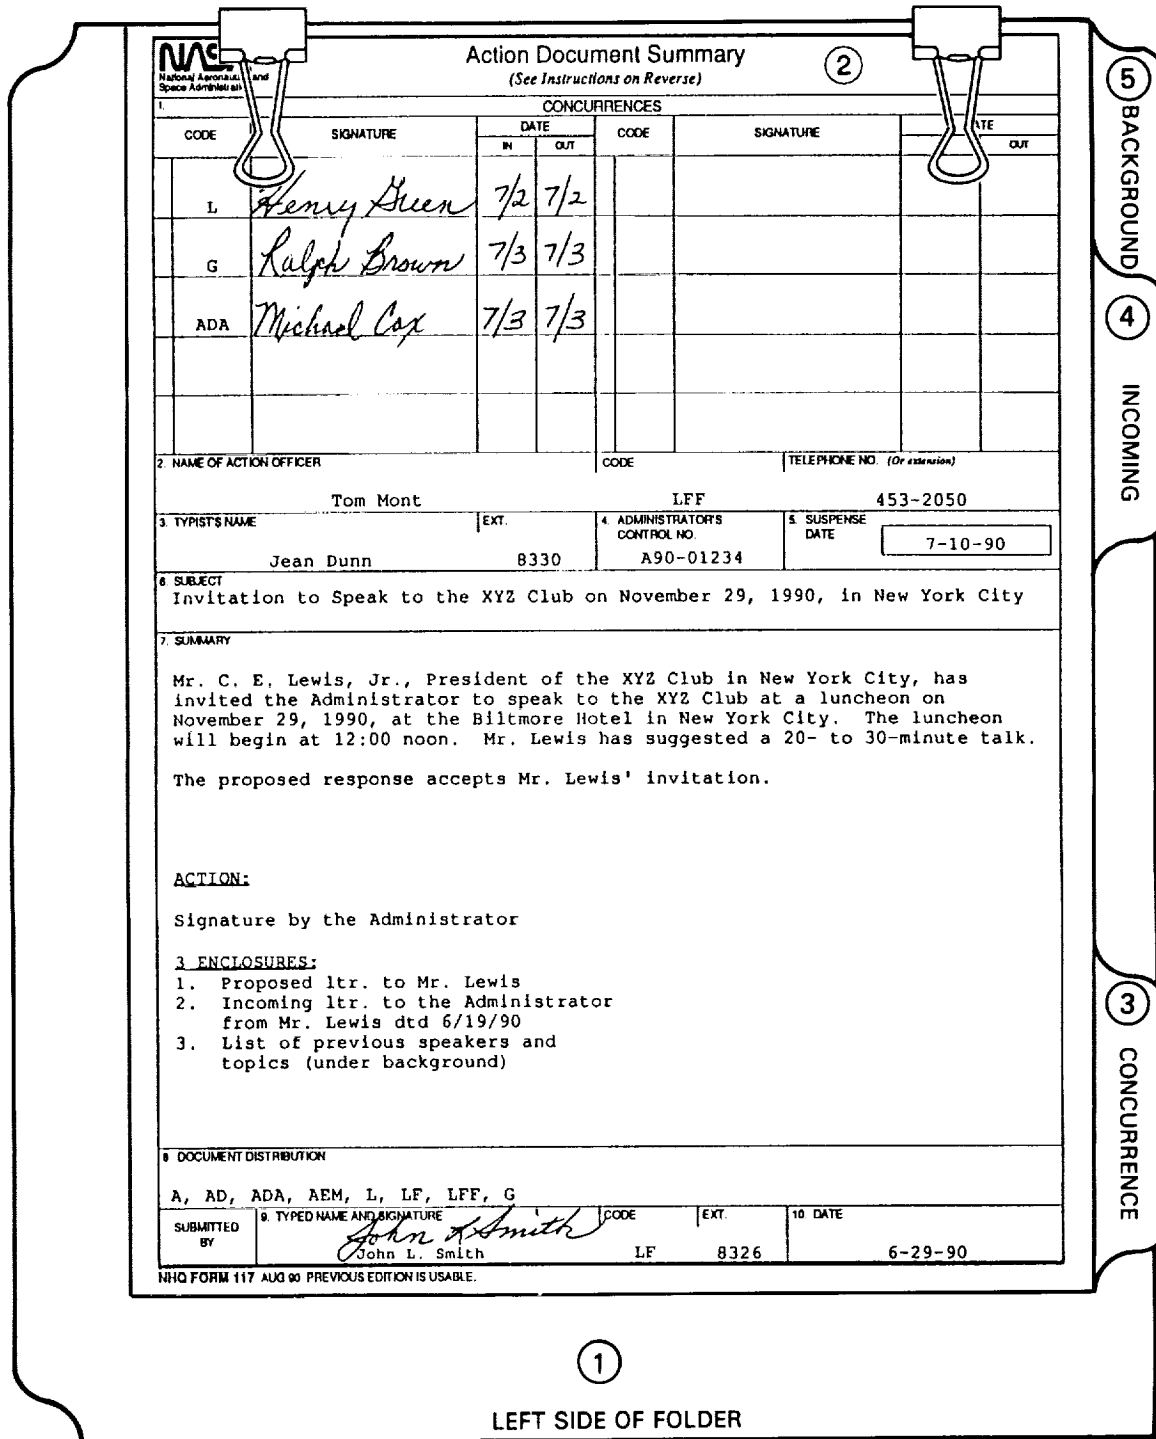 NAS
National Aeronautics and
Space Administration
Action Document Summary
(See Instructions on Reverse)
2
1.
CONCURRENCES
CODE SIGNATURE DATE CODE SIGNATURE
IN OUT OUT
L Henry Green 7/2 7/2
G Ralph Brown 7/3 7/3
ADA Michael Cox 7/3 7/3
2. NAME OF ACTION OFFICER CODE TELEPHONE NO. (Or extension)
Tom Mont LFF 453-2050
3. TYPIST'S NAME EXT. 4. ADMINISTRATOR'S CONTROL NO. 5. SUSPENSE DATE
Jean Dunn 8330 A90-01234 7-10-90
6. SUBJECT
Invitation to Speak to the XYZ Club on November 29, 1990, in New York City
7. SUMMARY
Mr. C. E. Lewis, Jr., President of the XYZ Club in New York City, has
invited the Administrator to speak to the XYZ Club at a luncheon on
November 29, 1990, at the Biltmore Hotel in New York City. The luncheon
will begin at 12:00 noon. Mr. Lewis has suggested a 20- to 30-minute talk.
The proposed response accepts Mr. Lewis' invitation.
ACTION:
Signature by the Administrator
3 ENCLOSURES:
1. Proposed ltr. to Mr. Lewis
2. Incoming ltr. to the Administrator
from Mr. Lewis dtd 6/19/90
3. List of previous speakers and
topics (under background)
8 DOCUMENT DISTRIBUTION
A, AD, ADA, AEM, L, LF, LFF, G
SUBMITTED BY 9. TYPED NAME AND SIGNATURE CODE EXT. 10. DATE
John L Smith
John L. Smith LF 8326 6-29-90
NHQ FORM 117 AUG 90 PREVIOUS EDITION IS USABLE.
5 BACKGROUND
4 INCOMING
3 CONCURRENCE
1
LEFT SIDE OF FOLDER